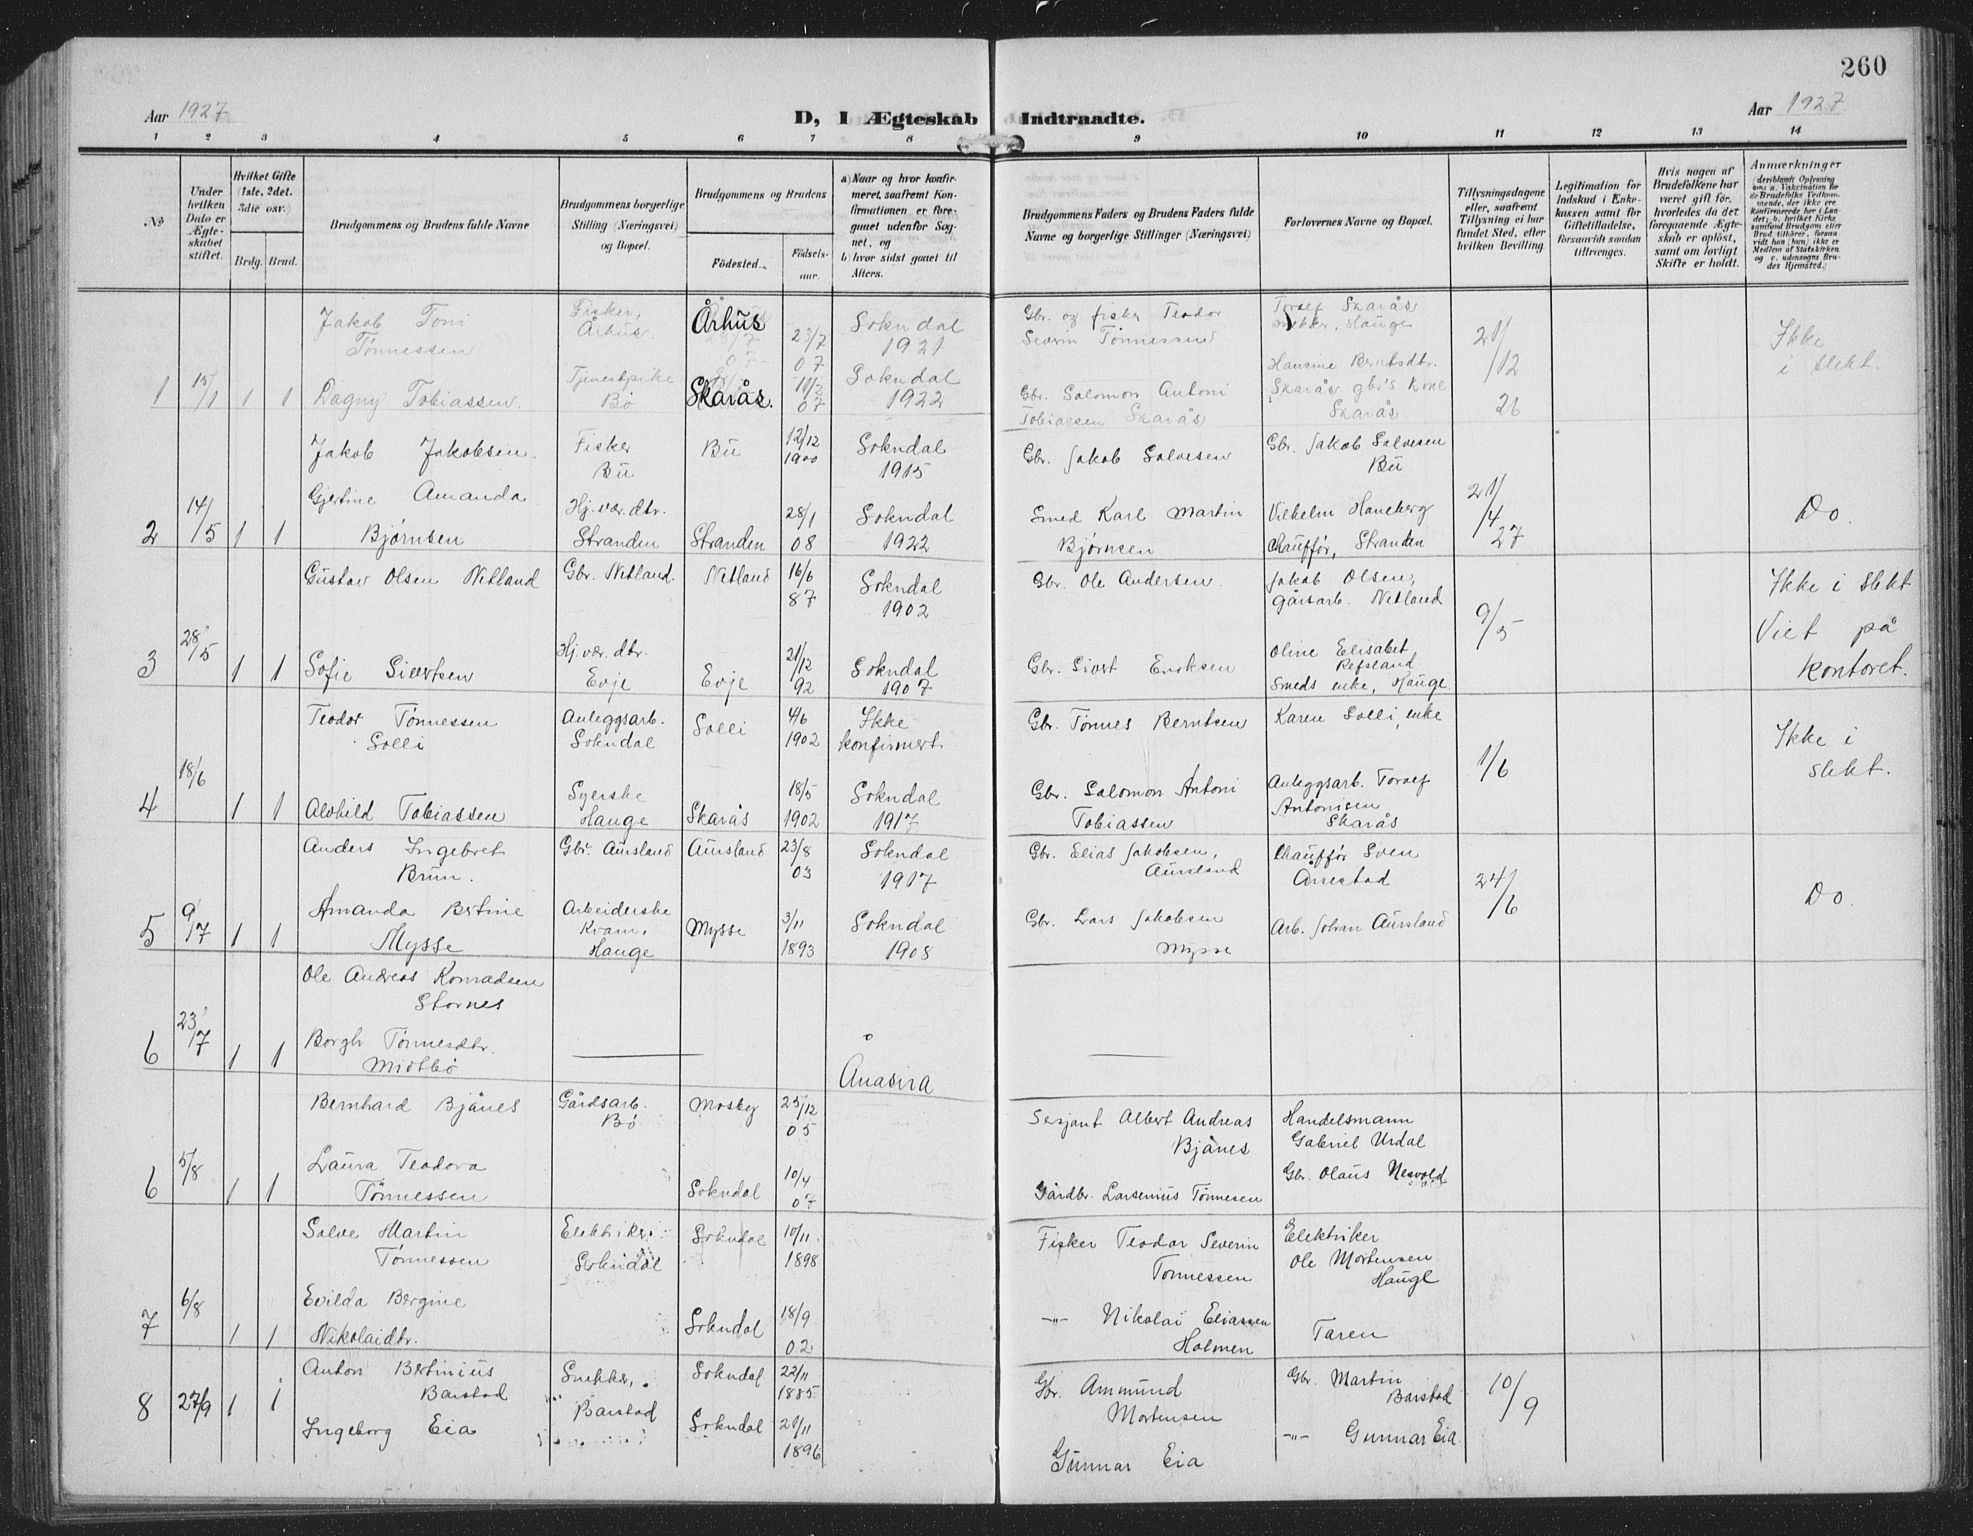 260
Aar 1927
D, I Ægteskab Indtraadte.
Aar 1927
1 2 3 4 5 6 7 8 9 10 11 12 13 14
No
Under hvilken Dato er Ægteskabet stiftet.
Hvilket Gifte (1ste, 2det, 3die osv.)
Brdg. Brud.
Brudgommens og Brudens fulde Navne
Brudgommens borgerlige Stilling (Næringsvei) og Bopæl.
Brudgommens og Brudens
Fødested.
Fødselsaar.
a) Naar og hvor konfirmeret, saafremt Konfirmationen er foregaaet udenfor Sognet, og
b) hvor sidst gaaet til Alters.
Brudgommens Faders og Brudens Faders fulde Navne og borgerlige Stillinger (Næringsvei)
Forlovernes Navne og Bopæl.
Tillysningsdagene eller, saafremt Tillysning ei har fundet Sted, efter hvilken Bevilling.
Legitimation for Indskud i Enkekassen samt for Giftetilladelse, forsaavidt saadan tiltrænges.
Hvis nogen af Brudefolkene har været gift før, hvorledes da det foregaaende Ægteskab er opløst, samt om lovligt Skifte er holdt.
Anmærkninger
1 15/1 1 1
Jakob Toni Tønnessen
Fisker, Århus
Århus
23/7 07
Sokndal 1921
Gbr. og fisker Teodor Severin Tønnessen
Torsef Skarås
snekker, Hauge
21/12 26
Ikke i slekt.
Dagny Tobiassen
Tjenestpike Bø
Skarås.
11/2 07
Sokndal 1922
Gbr. Salomon Antoni Tobiassen Skarås
Hansine Berntsdtr.
Skarås gbr's kone
Skarås
2 14/5 1 1
Jakob Jakobsen.
Fisker Bu
Bu
12/12 1900
Sokndal 1915
Gbr. Jakob Salvesen
Gbr. Jakob Salvesen Bu
21/4 27
Do.
Gjertine Amanda Bjørnsen
Hj. vær. dtr. Stranden
Stranden
28/1 08
Sokndal 1922
Smed Karl Martin Bjørnsen
Vilhelm Haneberg
Chauffør, Stranden
3 28/5 1 1
Gustav Olsen Netland
Gbr. Netland.
Netland
16/6 87
Sokndal 1902
Gbr. Ole Andersen.
Jakob Olsen,
gårsarb. Netland
9/5
Ikke i slekt
Viet på kontoret.
Sofie Sivertsen
Hj. vær. dtr. Evje
Evje
21/12 92
Sokndal 1907
Gbr. Sivert Eriksen
Oline Elisabet Refsland
Smeds enke, Hauge
4 18/6 1 1
Teodor Tønnessen Solli
Anleggsarb. Sokndal
Solli
4/6 1902
Ikke konfirmert.
Gbr. Tønnes Berntsen
Karen Solli, enke
1/6
Ikke i slekt.
Alvhild Tobiassen
Syerske Hauge
Skarås
18/5 1902
Sokndal 1917
Gbr. Salomon Antoni Tobiassen
Anleggsarb. Torsef Antonisen Skarås
5 9/7 1 1
Anders Ingebret Brun.
Gbr. Aursland
Aursland
23/8 03
Sokndal 1917
Gbr. Elias Jakobsen, Aursland
Chauffør Sven Årrestad
24/6
Do.
Amanda Bertine Mysse
Arbeiderske Kvam, Hauge
Mysse
3/11 1893
Sokndal 1908
Gbr. Lars Jakobsen Mysse
Arb. Johan Aursland
6 23/7 1 1
Ole Andreas Konradsen Stornes
Borgh. Tønnesdtr. Midtbø
Åna Sira
6 5/8 1 1
Bernhard Bjånes
Gårdsarb. Bø
Mosby
25/12 05
Sersjant Albert Andreas Bjånes
Handelsmann Gabriel Urdal
Laura Teodora Tønnessen
Sokndal
10/4 07
Gårdbr. Larsenius Tønnesen
Gbr. Olaus Nesvold
7 6/8 1 1
Salve Martin Tønnessen
Elektriker Sokndal
Sokndal
10/11 1898
Fisker Teodor Severin Tønnessen
Elektriker Ole Mortensen Hauge
Evilda Bergine Nikolaidtr.
Sokndal
18/9 02
-"- Nikolai Eliassen Holmen
Taren
8 27/9 1 1
Anton Bertinius Barstad
Snekker, Barstad
Sokndal
22/11 1885
Gbr. Ammund Mortensen
Gbr. Martin Barstad
10/9
Ingeborg Eia
Sokndal
21/11 1896
Gunnar Eia
-"- Gunnar Eia